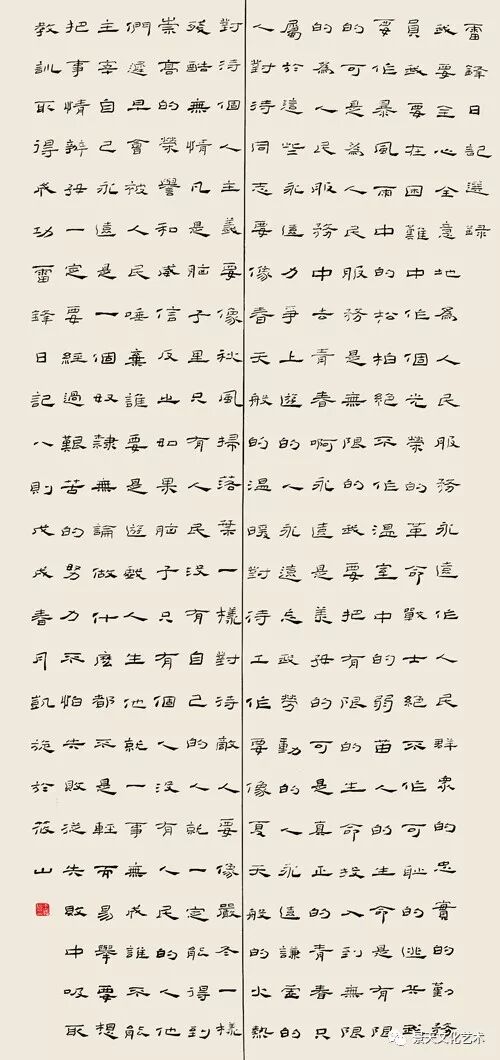 雷鋒日記選錄
我要全心全意地為人民服務永遠作人民群衆的忠實的勤務
員我要在困難中作個光榮的革命戰士絕不作可恥的逃兵我
要作暴風雨中的松柏絕不作溫室中的弱苗人的生命是有限
的可是為人民服務是無限的我要把有限的生命投入到無限
的為人民服務中去青春啊永遠是美好的可是真正的青春只
屬於這些永遠力爭上遊的人永遠忘我勞動的人永遠謙虛的
人對待同志要像春天般的溫暖對待工作要像夏天般的火熱
對待個人主義要像秋風掃落葉一樣對待敵人要像嚴冬一樣
殘酷無情凡是腦子里只有人民沒有自己的人就一定能得到
崇高的榮譽和威信反之如果腦子只有個人沒有人民的人他
們遲早會被人民唾棄誰要是遊戲人生他就一事無成誰不能
主宰自己永遠是一個奴隸無論做什麽都不是輕而易舉要想
把事情辦好一定要經過艱苦的努力不怕失敗從失敗中吸取
教訓取得成功雷鋒日記八則戊戌春月凱旋於筱山
景天文化艺术